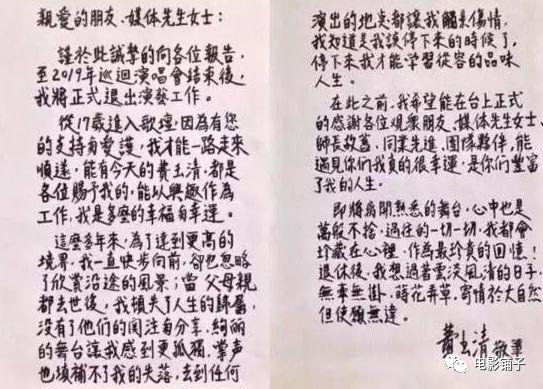 親愛的朋友、媒体先生女士：
謹於此誠摯的向各位報告，
至2019年巡迴演唱會結束後，
我將正式退出演藝工作。
從17歲進入歌壇，因為有您
的支持與愛護，我才能一路走來
順遂，能有今天的費玉清，都是
各位賜予我的，能以興趣作為
工作，我是多麼的幸福與幸運。
這麼多年來，為了達到更高的
境界，我一直快步向前，卻也忽略
了欣賞沿途的風景；當父母親
都去世後，我頓失了人生的歸屬，
沒有了他們的關注與分享，絢麗
的舞台讓我感到更孤獨，掌声
也填補不了我的失落，去到任何
演出的地点都讓我觸景傷情，
我知道是我該停下來的時候了，
停下來我才能学習從容的品味
人生。
在此之前，我希望能在台上正式
的感謝各位观眾朋友、媒体先生女士、
師長故舊、同業先進、团隊夥伴，能
遇見你們我真的很幸運，是你們豐富
了我的人生。
即將離開熟悉的舞台，心中也是
萬般不捨，過往的一切一切，我都會
珍藏在心裡，作為最珍貴的回憶！
退休後，我想過著雲淡風清的日子，
無牽無掛，蒔花弄草，寄情於大自然
但使願無違。
費玉清 敬筆
电影铺子